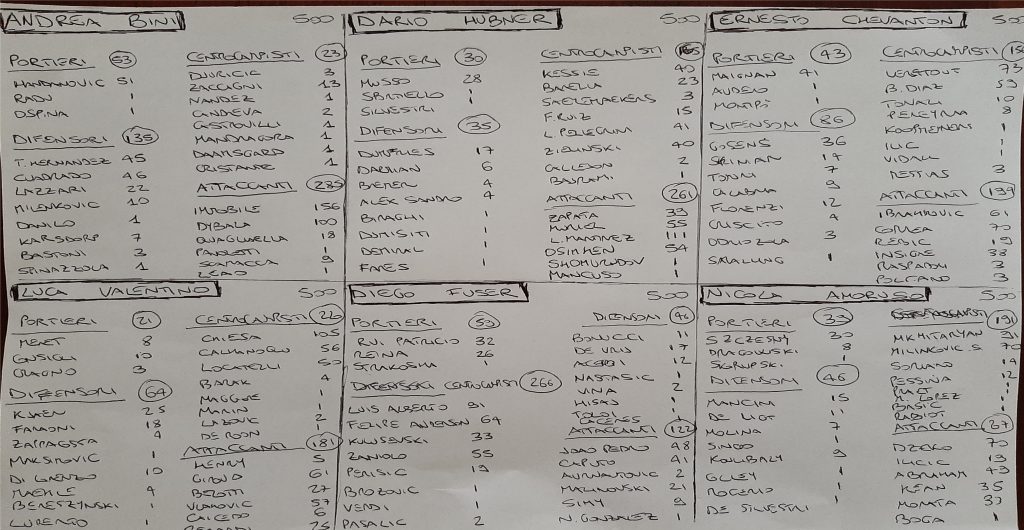 ANDREA BINI 500
PORTIERI 53
HANDANOVIC 51
RADU 1
OSPINA 1
DIFENSORI 135
T. HERNANDEZ 45
CUADRADO 46
LAZZARI 22
MILENKOVIC 10
DANILO 1
KARSDORP 7
BASTONI 3
SPINAZZOLA 1
CENTROCAMPISTI 23
DJURICIC 3
ZACCAGNI 13
NANDEZ 1
CANDREVA 2
CASTROVILLI 1
MANDRAGORA 1
DAMSGARD 1
CRISTANTE 1
ATTACCANTI 289
IMMOBILE 156
DYBALA 100
QUAGLIARELLA 18
PAVOLETTI 9
SCAMACCA 1
LEAO 1
DARIO HUBNER 500
PORTIERI 30
MUSSO 28
SPORTIELLO 1
SILVESTRI 1
DIFENSORI 35
DUMFRIES 17
DARMIAN 6
BREMER 4
ALEX SANDRO 4
BIRAGHI 1
DUMISITI 1
DEMIRAL 1
FARES 1
CENTROCAMPISTI
KESSIE 40
BARELLA 23
SAELEMAEKERS 3
F. RUIZ 15
L. PELLEGRINI 41
ZIELINSKI 40
CALLEJON 2
BAJRAMI 1
ATTACCANTI 261
ZAPATA 39
MURIEL 55
L. MARTINEZ 111
OSIMHEN 54
SHOMURODOV 1
MANCUSO 1
ERNESTO CHEVANTON 500
PORTIERI 43
MAIGNAN 41
AUDERO 1
MONTIPÒ 1
DIFENSORI 86
GOSENS 36
SKRINIAR 17
TONALI 7
CALABRIA 9
FLORENZI 12
CRISCITO 4
ODRIOZOLA 3
SMALLING 1
CENTROCAMPISTI
VERETOUT 73
B. DIAZ 59
TONALI 10
PEREYRA 8
KOOPMEINERS 1
ILIC 1
VIDAL 1
MESSIAS 3
ATTACCANTI
IBRAHIMOVIC 61
CORREA 70
REBIC 19
INSIGNE 38
RASPADORI 3
POLITANO 3
LUCA VALENTINO 500
PORTIERI 21
MERET 8
CONSIGLI 10
CRAGNO 3
DIFENSORI 64
KJAER 25
FARAONI 18
ZAPPACOSTA 4
MAKSIMOVIC 1
DI LORENZO 10
MAEHLE 4
BERESZYNSKI 1
LUPERTO 1
CENTROCAMPISTI
CHIESA 105
CALHANOGLU 56
LOCATELLI 50
BARAK 4
MAGGIORE 1
MARIN 1
LAZOVIC 2
DE ROON 1
ATTACCANTI 181
HENRY 5
GIROUD 61
BELOTTI 27
VLAHOVIC 57
CAICEDO 6
25
DIEGO FUSER 500
PORTIERI 59
RUI PATRICIO 32
REINA 26
STRAKOSHA 1
CENTROCAMPISTI 266
LUIS ALBERTO 91
FELIPE ANDERSON 64
KULUSEVSKI 33
ZANIOLO 55
PERISIC 19
BROZOVIC 1
VERDI 1
PASALIC 2
DIFENSORI
BONUCCI 11
DE VRIJ 17
ACERBI 12
NASTASIC 1
VINA 2
HISAJ 1
TOLOI 1
CACERES 1
ATTACCANTI 122
JOAO PEDRO 48
CAPUTO 41
ARNAUTOVIC 2
MALINOVSKI 21
SIMY 9
N. GONZALEZ 1
NICOLA AMORUSO 500
PORTIERI 39
SZCZESNY 30
DRAGOWSKI 8
SKORUPSKI 1
DIFENSORI 46
MANCINI 15
DE LIGT 11
MOLINA 7
SINGO 1
KOULIBALY 9
GLEY 1
ROGERIO 1
DE SILVESTRI 1
191
MKHITARYAN 91
MILINKOVIC S. 70
SORIANO 14
PESSINA 12
PRAET 1
M. LOPEZ 1
BASIC 1
RABIOT 1
ATTACCANTI
DZEKO 70
ILICIC 13
ABRAHAM 43
KEAN 35
MORATA 37
BOGA 1